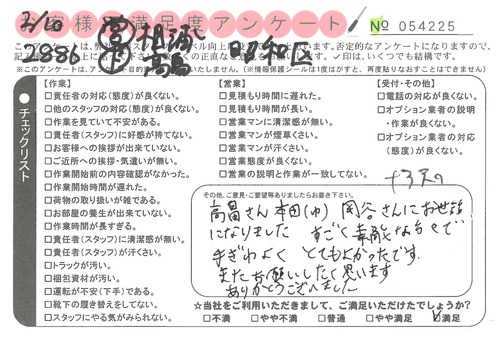 お客様満足度アンケート
№ 054225
3/10
2886
昭和区
※このアンケートは、
いたしません。(※情報保護シールは1度はがすと、再度貼りなおすことはできません)
チェックリスト
【作業】
□責任者の対応(態度)が良くない。
□他のスタッフの対応(態度)が良くない。
□作業を見ていて不安がある。
□責任者(スタッフ)に好感が持てない。
□お客様への挨拶が出来ていない。
□ご近所への挨拶・気遣いが無い。
□作業開始前の内容確認がなかった。
□作業開始時間が遅れた。
□荷物の取り扱いが雑である。
□お部屋の養生が出来ていない。
□作業時間が長すぎる。
□責任者(スタッフ)に清潔感が無い。
□責任者(スタッフ)が汗くさい。
□トラックが汚い。
□梱包資材が汚い。
□運転が不安(下手)である。
□靴下の履き替えをしてない。
□スタッフにやる気がみられない。
【営業】
□見積もり時間に遅れた。
□見積もり時間が長い。
□営業マンに清潔感が無い。
□営業マンが煙草くさい。
□営業マンが汗くさい。
□営業態度が良くない。
□営業の説明と作業が一致してない。
【受付・その他】
□電話の対応が良くない。
□オプション業者の説明
・作業が良くない。
□オプション業者の対応
(態度)が良くない。
その他、ご意見・ご要望等ありましたらお書き下さい。
高畠さん 本田(ゆ) 岡谷さんにお世話
になりました すごく素敵な方々で
手ぎわよく とてもよかったです。
またお願いしたく思います
ありがとうございました
☆当社をご利用いただきまして、ご満足いただけたでしょうか?
□不満 □やや不満 □普通 □やや満足 ☑満足